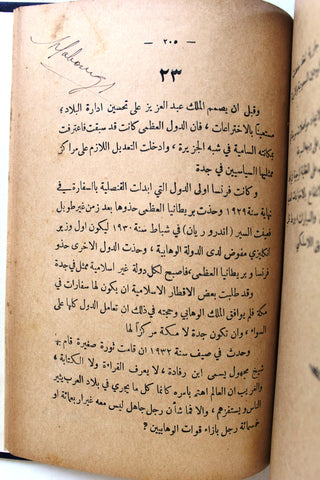 — ٢٠٥ —
٢٣
وقبل ان يصمم الملك عبد العزيز على تحسين ادارة البلاد ؛
مستعيناً بالاختراعات ، فان الدول العظمى كانت قد سبقت فاعترفت
بمكانته السامية في شبه الجزيرة ، وادخلت التعديل اللازم على مراكز
ممثليها السياسيين في جدة
و كانت فرنسا اولى الدول التي ابدلت القنصلية بالسفارة في
نهاية سنة ١٩٢٩ وحذت بريطانيا العظمى حذوها بعد زمن غير طويل
فعينت السير ( اندرو ريان ) في شباط سنة ١٩٣٠ ليكون اول وزير
انكليزي مفوض لدى الدولة الوهابية ، وحذت الدول الاخرى حذو
فرنسا و بريطانيا العظمى ، فاصبح لكل دولة غير اسلامية ممثل في جدة
وقد طلبت بعض الاقطار الاسلامية ان يكون لها سفارات في
مكة فلم يوافق الملك الوهابي وحجته في ذلك ان تعامل الدول كلها على
السواء ، وان تكون جدة لا مكة مركزاً لها
وحدث في صيف سنة ١٩٣٢ ان قامت ثورة صغيرة قام بها
شيخ مجهول يسمى ابن رفادة ، لا يعرف القراءة ولا الكتابة ،
والغريب ان العالم اهتم بامره كانما كل ما يجري في بلاد العرب يثير
الناس ويستفزهم ، والا فما شأن رجل جاهل ليس معه غير اربعمائة او
خمسمائة رجل بازاء قوات الوهابيين ؟